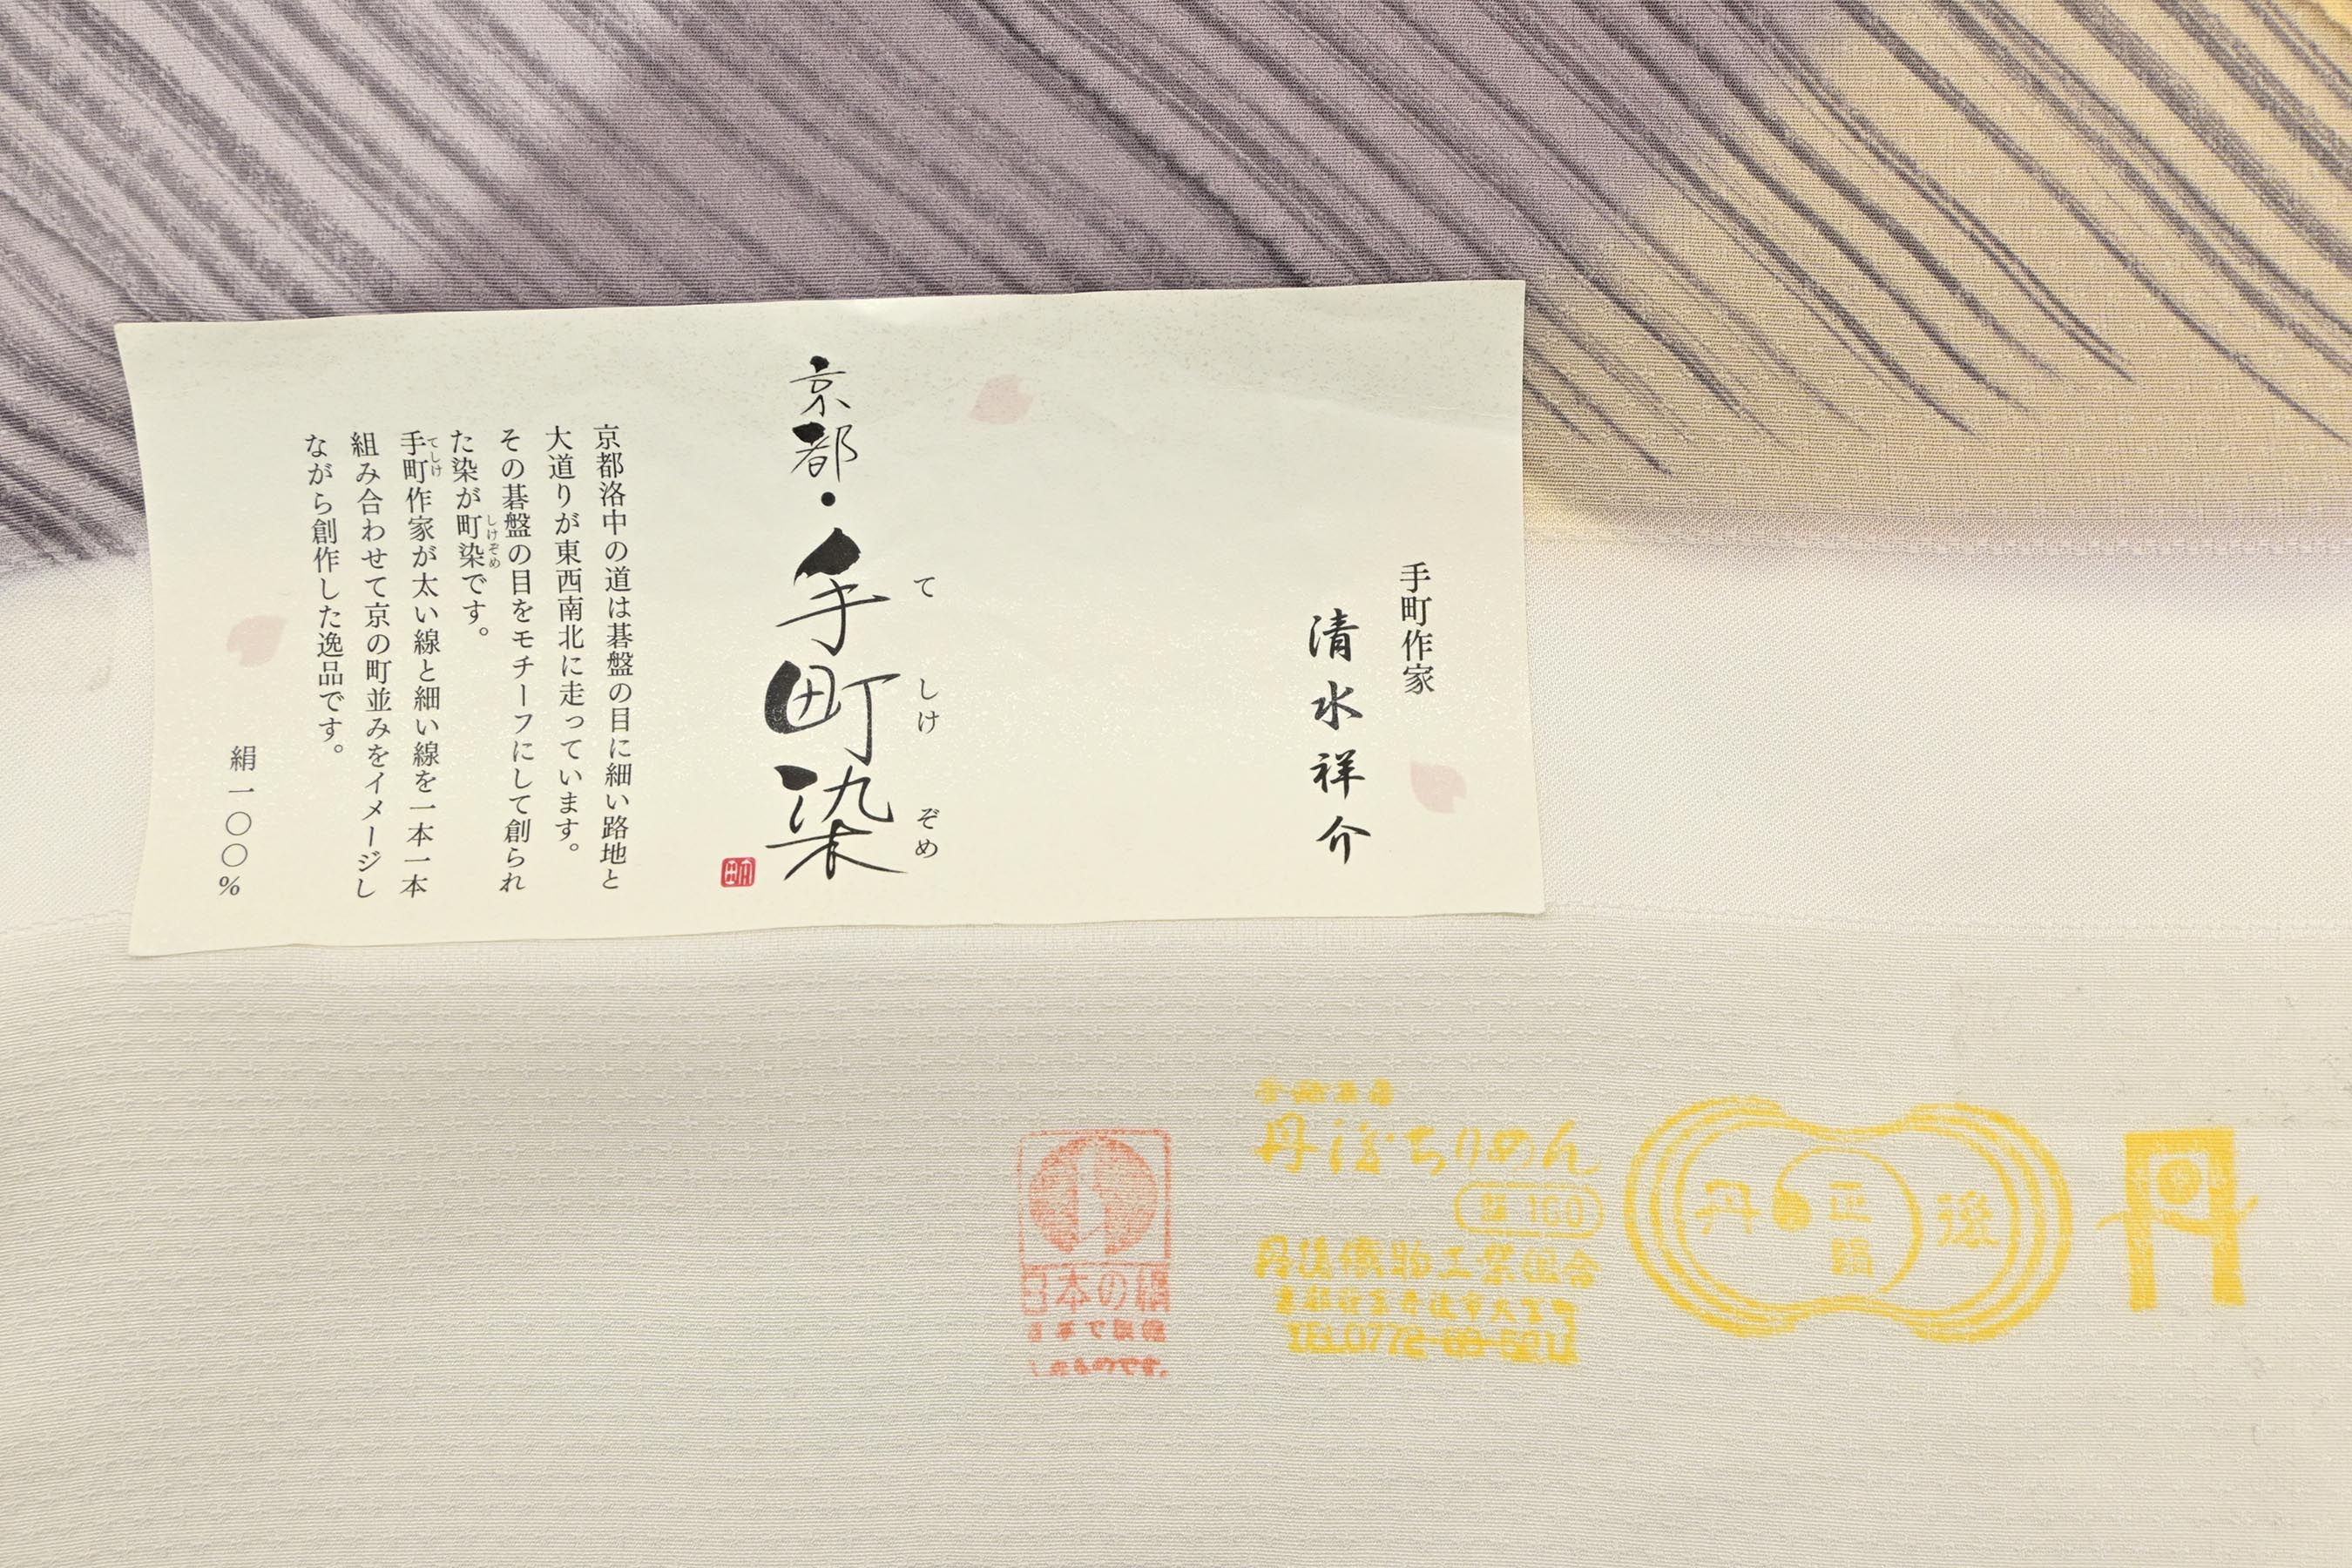 手町作家
清水祥介
京都・手町染
て しけ ぞめ
京都洛中の道は碁盤の目に細い路地と
大道りが東西南北に走っています。
その碁盤の目をモチーフにして創られ
た染が町染です。
しけぞめ
手町作家が太い線と細い線を一本一本
てしけ
組み合わせて京の町並みをイメージし
ながら創作した逸品です。
絹一〇〇%
丹後ちりめん
絹100
丹後織物工業組合
京都府京丹後市大宮町
丹後
正絹
丹
日本の絹
したものです。